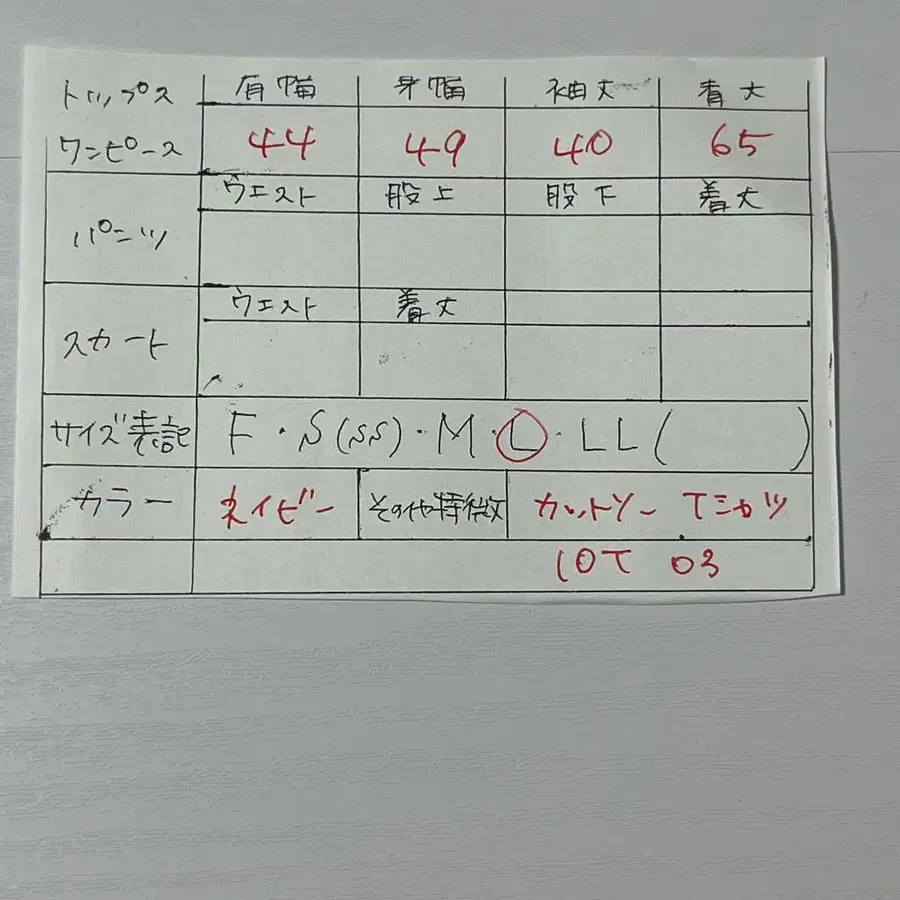 トップス 肩幅 身幅 袖丈 着丈
ワンピース 44 49 40 65
ウエスト 股上 股下 着丈
パンツ
ウエスト 着丈
スカート
サイズ表記 F・S(SS)・M・L・LL( )
カラー ネイビー その他特徴 カットソー Tシャツ
LOT 03